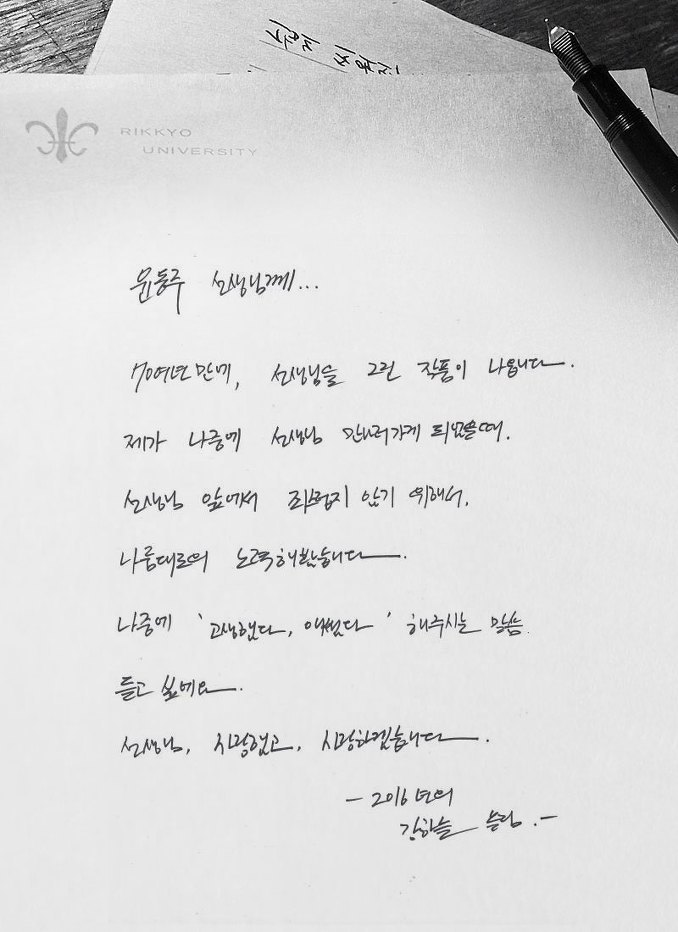 RIKKYO
UNIVERSITY
윤동주 선생님께...
70여년만에, 선생님을 그린 작품이 나옵니다.
제가 나중에 선생님 만나러가게 되었을때,
선생님 앞에서 부끄럽지 않기 위해서,
나름대로의 노력해봤습니다.
나중에 '고생했다, 애썼다' 해주시는 말씀
듣고 싶어요.
선생님, 사랑했고, 사랑하겠습니다.
- 2016년의
강하늘 드림.-